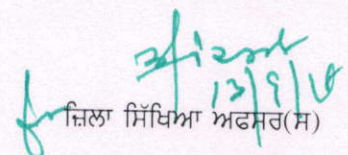 13/9/18
ਜ਼ਿਲਾ ਸਿੱਖਿਆ ਅਫਸਰ(ਸ)